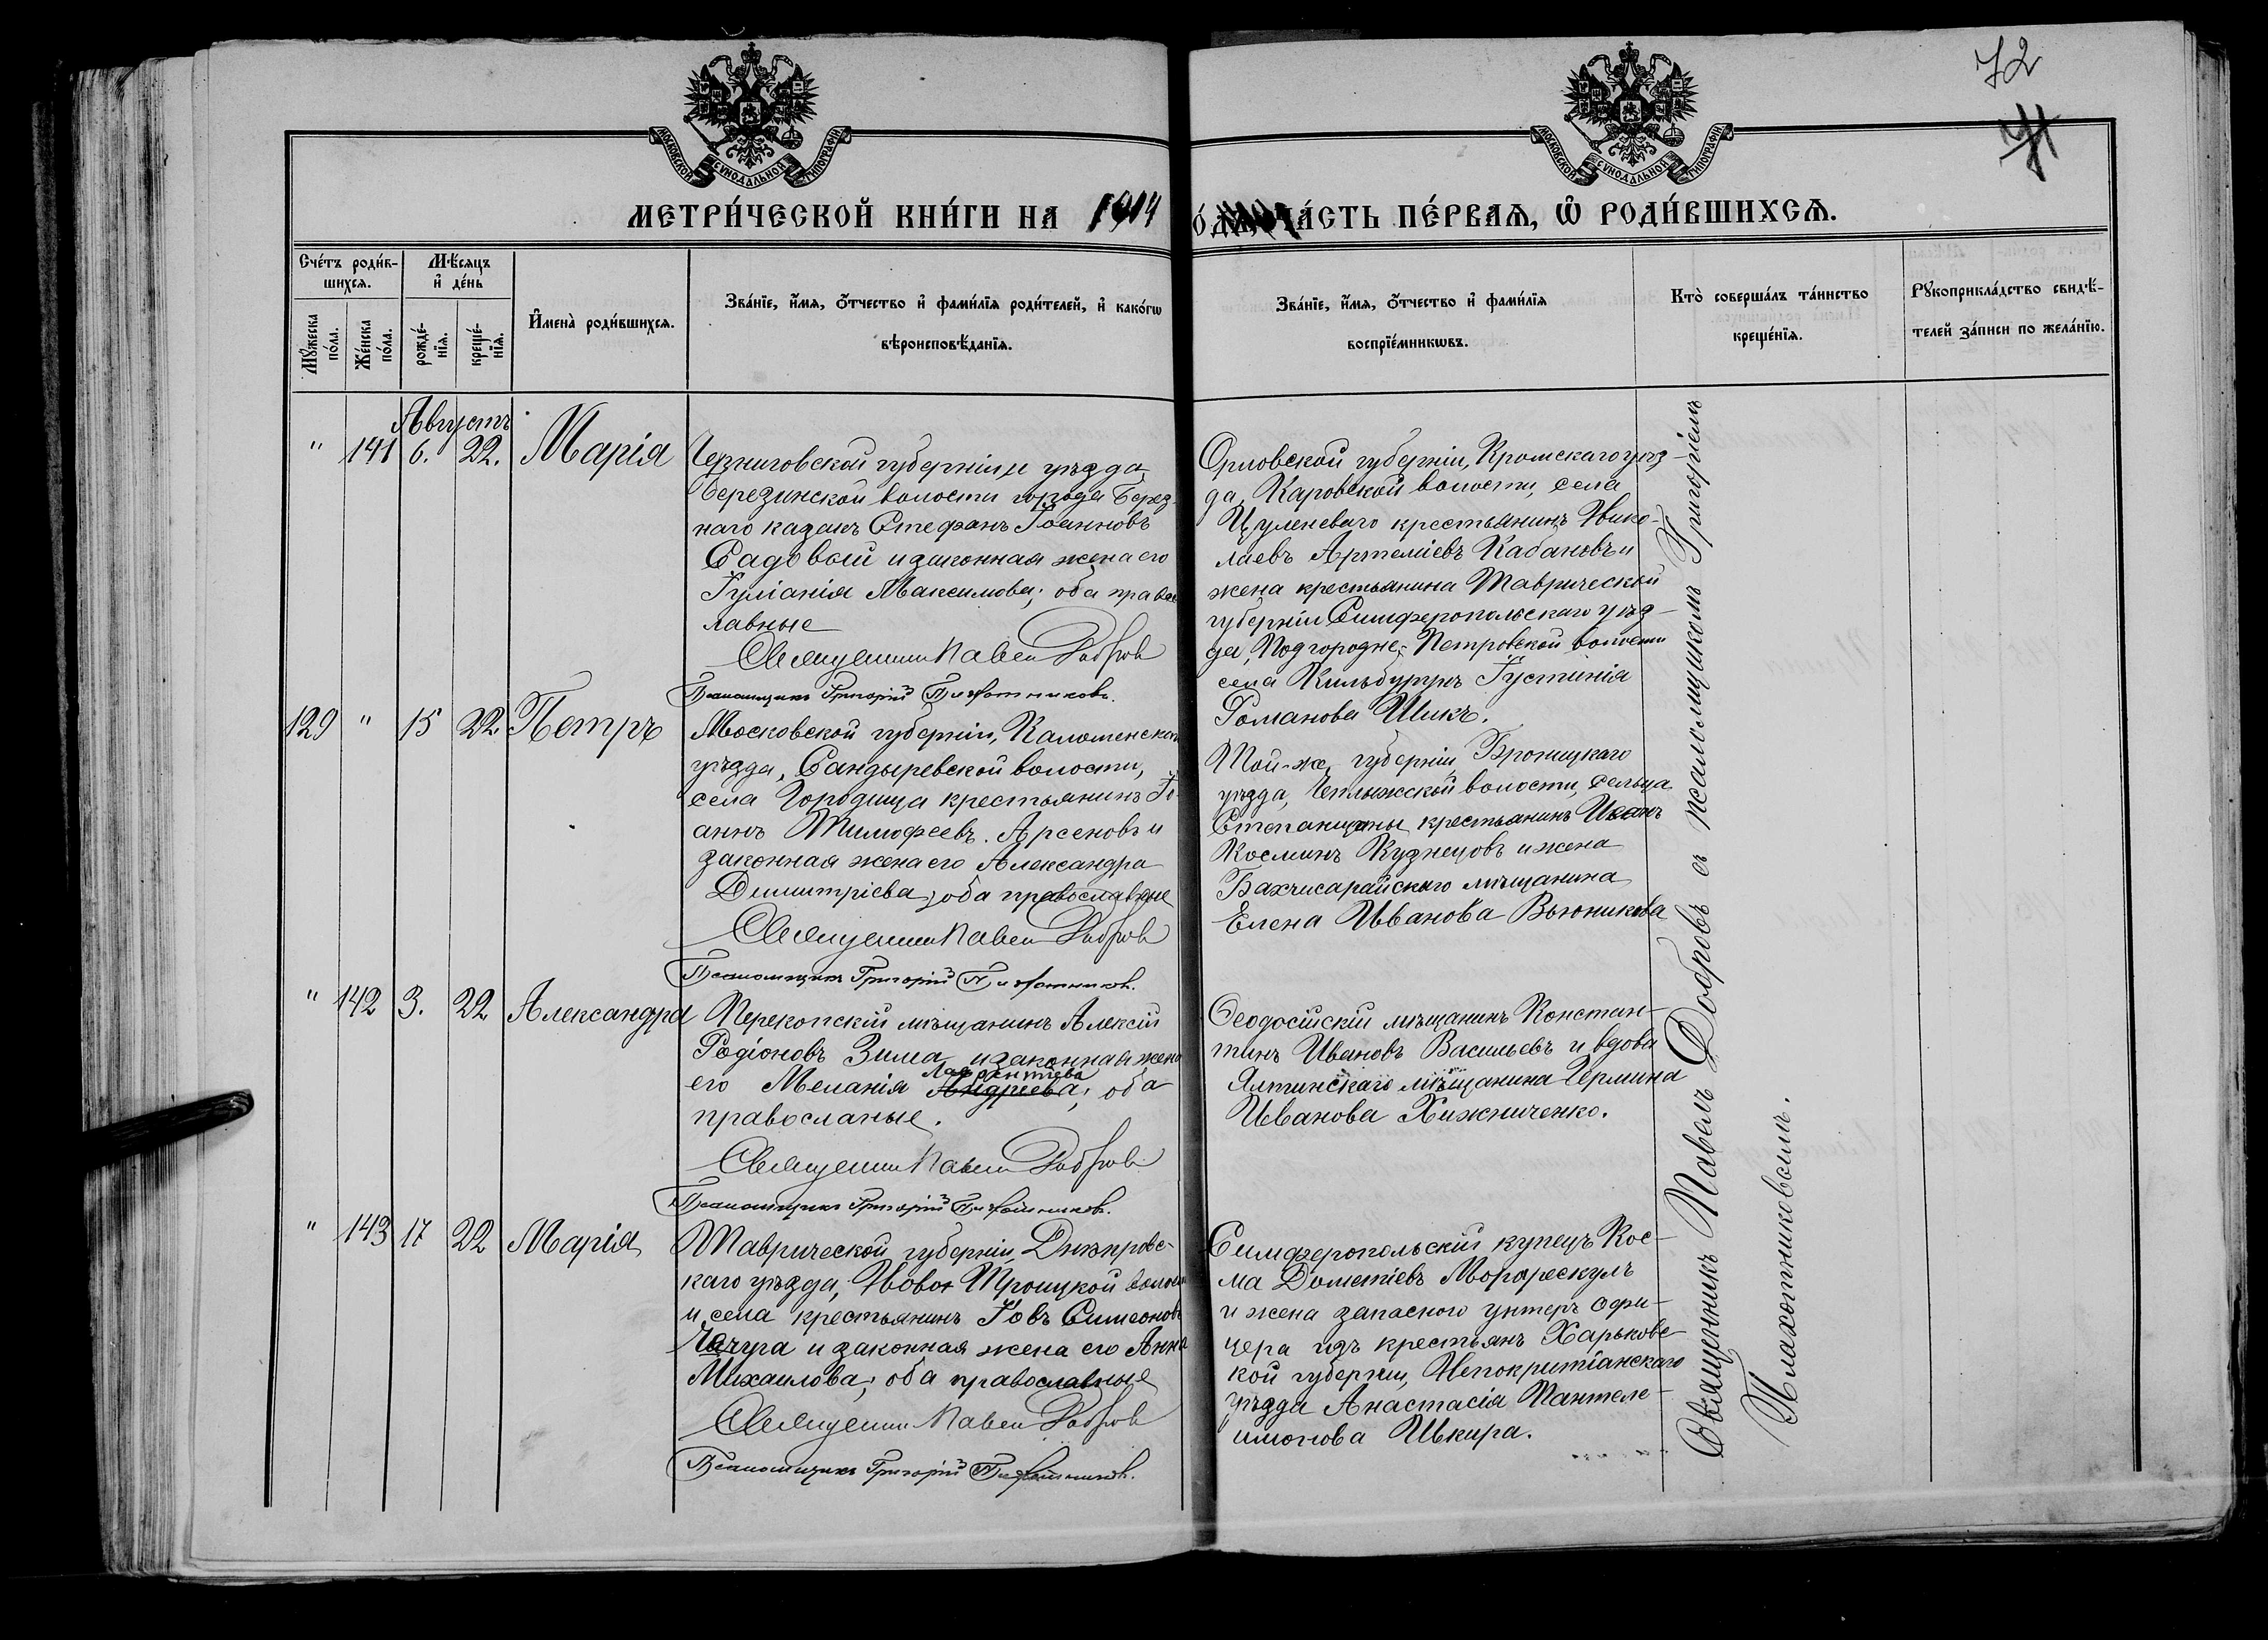 72
71
МОСКОВСКОЙ СУНОДАЛЬНОЙ ТИПОГРАФІИ
МОСКОВСКОЙ СУНОДАЛЬНОЙ ТИПОГРАФІИ
МЕТРИ́ЧЕСКОЙ КНИ́ГИ НА 1914
ЧА́СТЬ ПЕ́РВАЯ, Ѡ҆ РОДИ́ВШИХСЯ.
Сче́тъ роди́в-
шихся.
Мѣ́сяцъ
и҆ де́нь
Мꙋ́жеска
по́ла.
Же́нска
по́ла.
рожде́-
нїя.
креще́-
нїя.
И҆мена̀ роди́вшихся.
Зва́нїе, и҆́мя, ѻ҆́тчество и҆ фами́лїя роди́телей, и҆ како́гѡ
вѣроисповѣ́данїя.
Зва́нїе, и҆́мя, ѻ҆́тчество и҆ фами́лїя
воспрїе́мникѡвъ.
Кто̀ соверша́лъ та́инство
креще́нїя.
Рꙋкоприкла́дство свидѣ́-
телей за́писи по жела́нїю.
Августъ
" 141 6. 22. Марія
Черниговской губерніи и уѣзда
Березинской волости города Берез-
наго казакъ Стефанъ Іоанновъ
Садовой и законная жена его
Іуліанія Максимова; оба правос
лавные
Священникъ Павелъ Добровъ
Псаломщикъ Григорій Плахотниковъ.
Орловской губерніи, Кромскаго уѣз-
да, Каровской волости, села
Цуленеваго крестьянинъ Нико-
лаевъ Артеміевъ Кабановъ и
жена крестьянина Таврической
губерніи Симферопольскаго уѣз-
да, Подгородне-Петровской волости
села Кильбурунъ Іустинія
Романова Шикъ.
129 " 15 22 Петръ
Московской губерніи, Каломенскаго
уѣзда, Сандыревской волости,
села Городища крестьянинъ Іо-
аннъ Тимофеевъ Арсеновъ и
законная жена его Александра
Димитріева; оба православные
Священникъ Павелъ Добровъ
Псаломщикъ Григорій Плахотниковъ.
Той-же губерніи Броницкаго
уѣзда, волости, сельца
Степанщины крестьянинъ Иванъ
Косминъ Кузнецовъ и жена
Бахчисарайскаго мѣщанина
Елена Иванова Вьюникова
" 142 3. 22 Александра
Перекопскій мѣщанинъ Алексій
Родіоновъ Зима и законная жена
Лаврентіева
его Меланія Андреева; оба
правосланые.
Священникъ Павелъ Добровъ
Псаломщикъ Григорій Плахотниковъ.
Ѳеодосійскій мѣщанинъ Констан-
тинъ Ивановъ Васильевъ и вдова
Ялтинскаго мѣщанина Гермина
Иванова Хижниченко.
" 143 17 22 Марія
Таврической губерніи Днѣпровс-
каго уѣзда, Ново Троицкой волости
и села крестьянинъ Іовъ Симеоновъ
Чачура и законная жена его Анна
Михаилова; оба православные
Священникъ Павелъ Добровъ
Псаломщикъ Григорій Плахотниковъ.
Симферопольскій купецъ Кос-
ма Дометіевъ Морарескулъ
и жена запаснаго унтеръ офи-
цера изъ крестьянъ Харьковс-
кой губерніи, Непокритіанскаго
уѣзда Анастасія Пантеле-
имонова Шкира.
Священникъ Павелъ Добровъ съ псаломщикомъ Григоріемъ
Плахотниковымъ.